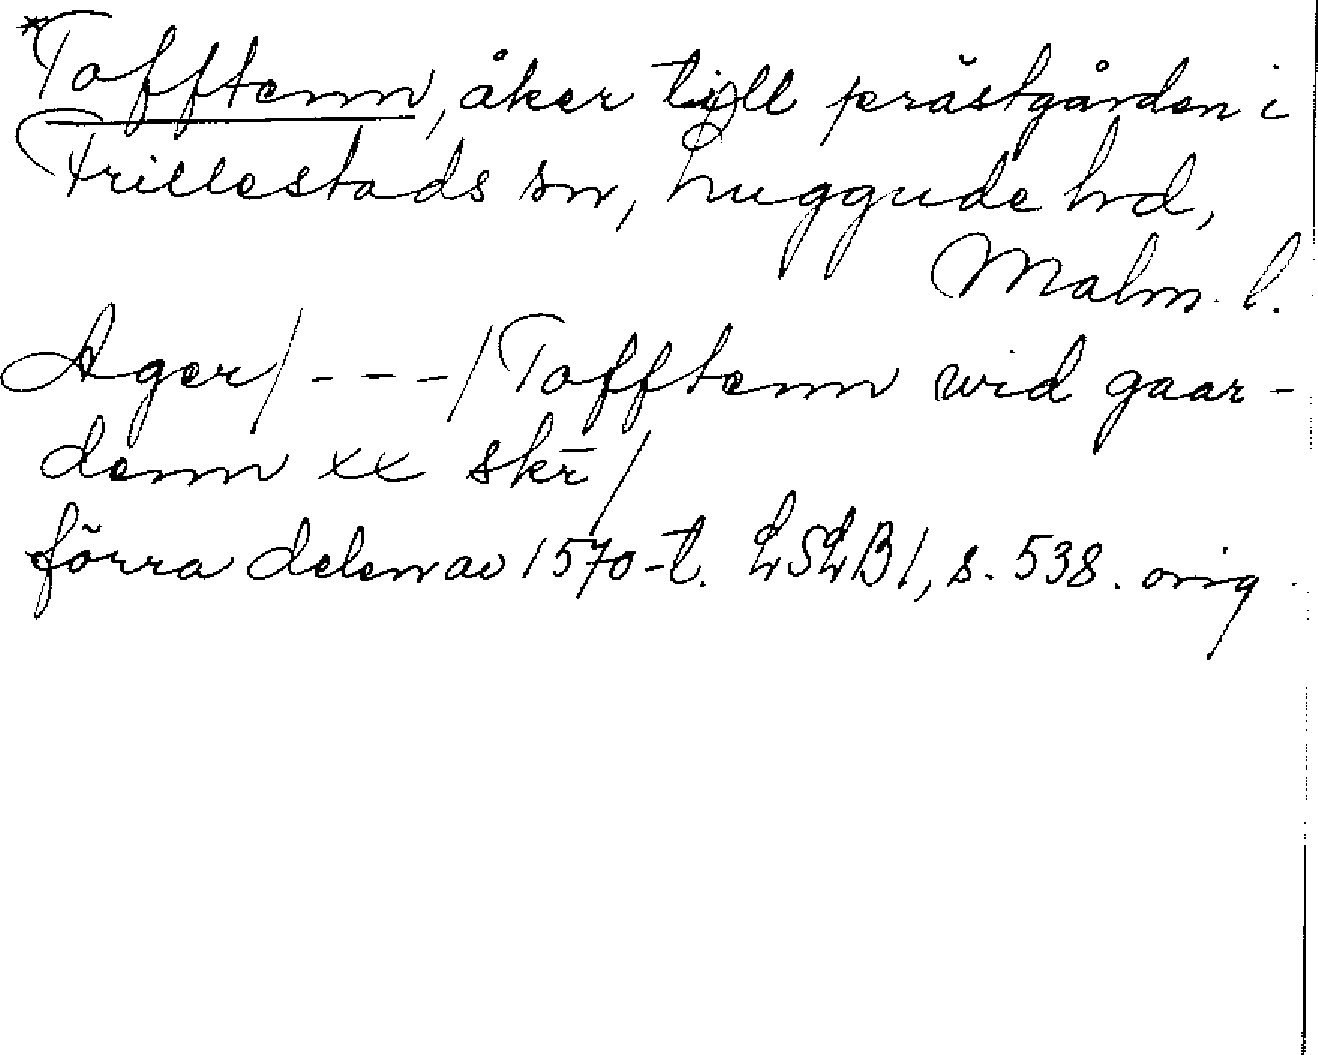 *Tofftenn, åker till prästgården i
Frillestads sn, Luggude hd,
Malm. l.
Ager / - - - / Tofftenn wid gaar-
denn xx skr̄ /
förra delen av 1570-t. LSLB1, s. 538. orig.